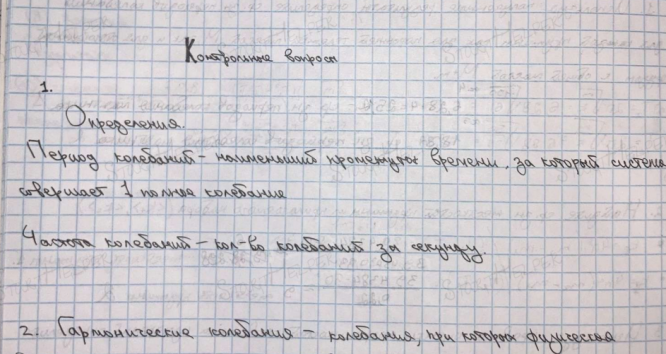 Контрольные вопросы
1.
Определения.
Период колебаний - наименьший промежуток времени, за который система
совершает 1 полное колебание
Частота колебаний - кол-во колебаний за секунду.
2. Гармонические колебания - колебания, при которых физическая